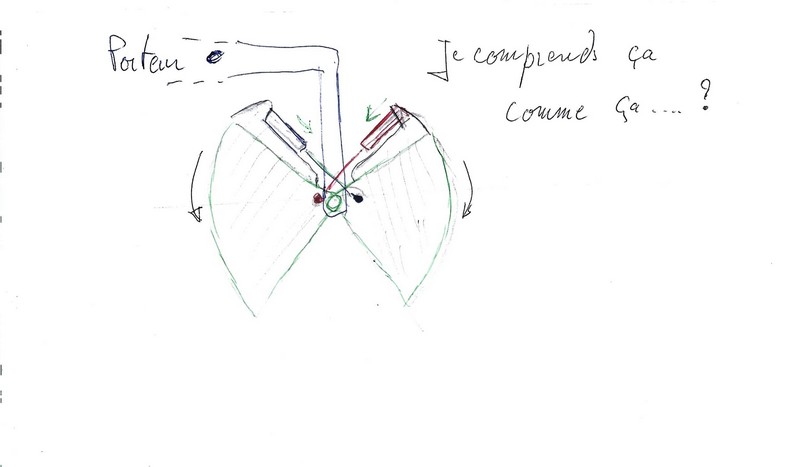 Porteur
Je comprends ça
comme ça.... ?